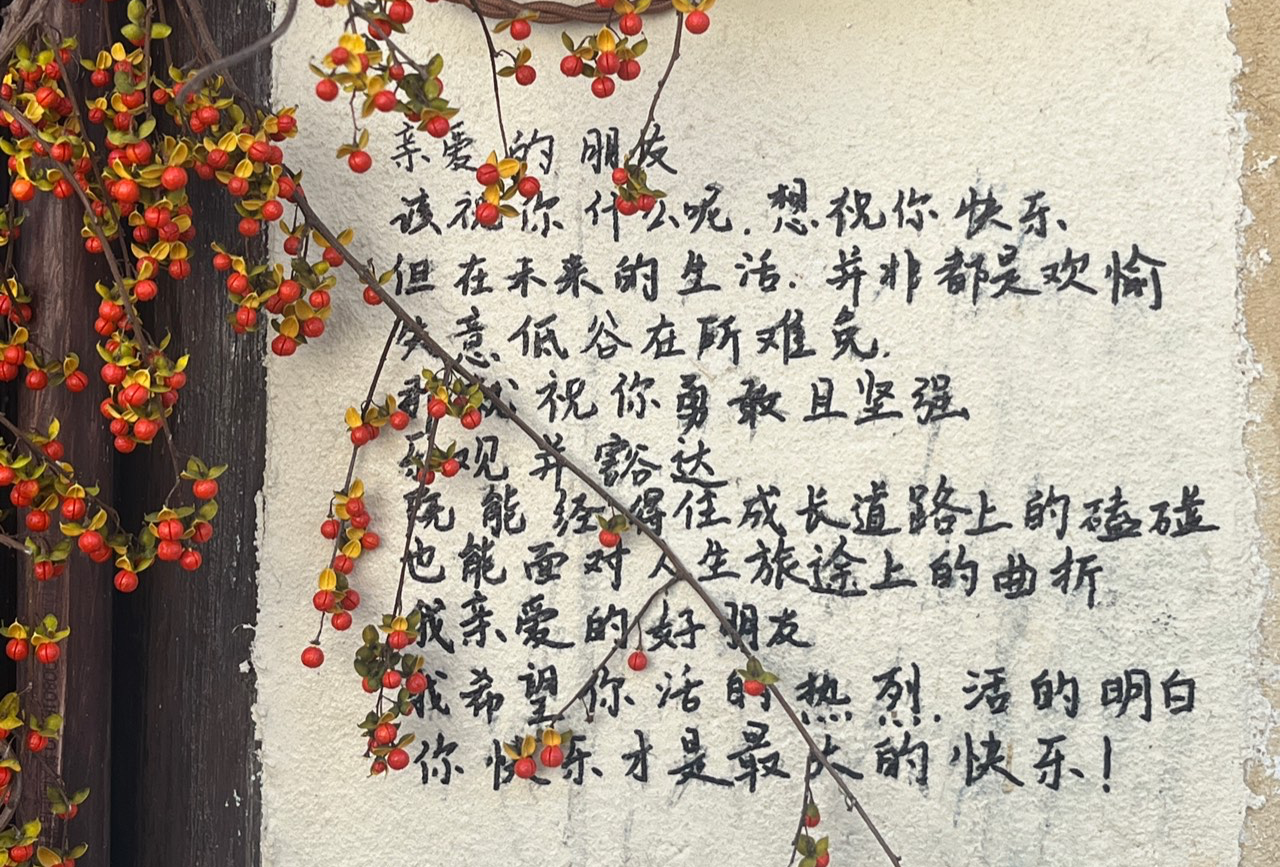 亲爱的朋友
该祝你什么呢.想祝你快乐
但在未来的生活.并非都是欢愉
失意低谷在所难免.
我就祝你勇敢且坚强
乐观并豁达
既能经得住成长道路上的磕碰
也能面对人生旅途上的曲折
我亲爱的好朋友
我希望你活的热烈.活的明白
你快乐才是最大的快乐!